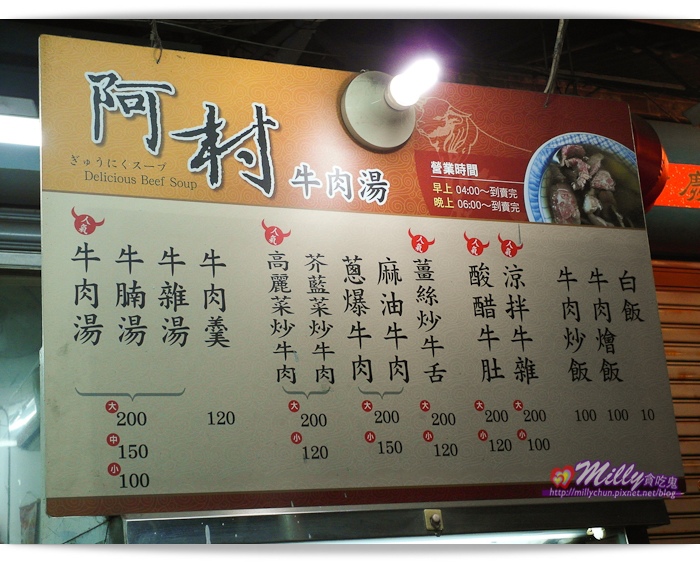 阿村 牛肉湯
ぎゅうにくスープ
Delicious Beef Soup
營業時間
早上 04:00～到賣完
晚上 06:00～到賣完
人氣 牛肉湯
牛腩湯
牛雜湯
大 200
中 150
小 100
牛肉羹
120
人氣 高麗菜炒牛肉
芥藍菜炒牛肉
大 200
小 120
蔥爆牛肉
麻油牛肉
大 200
小 150
人氣 薑絲炒牛舌
大 200
小 120
人氣 酸醋牛肚
大 200
小 120
人氣 涼拌牛雜
大 200
小 100
牛肉炒飯
100
牛肉燴飯
100
白飯
10
Milly貪吃鬼
http://millychun.pixnet.net/blog